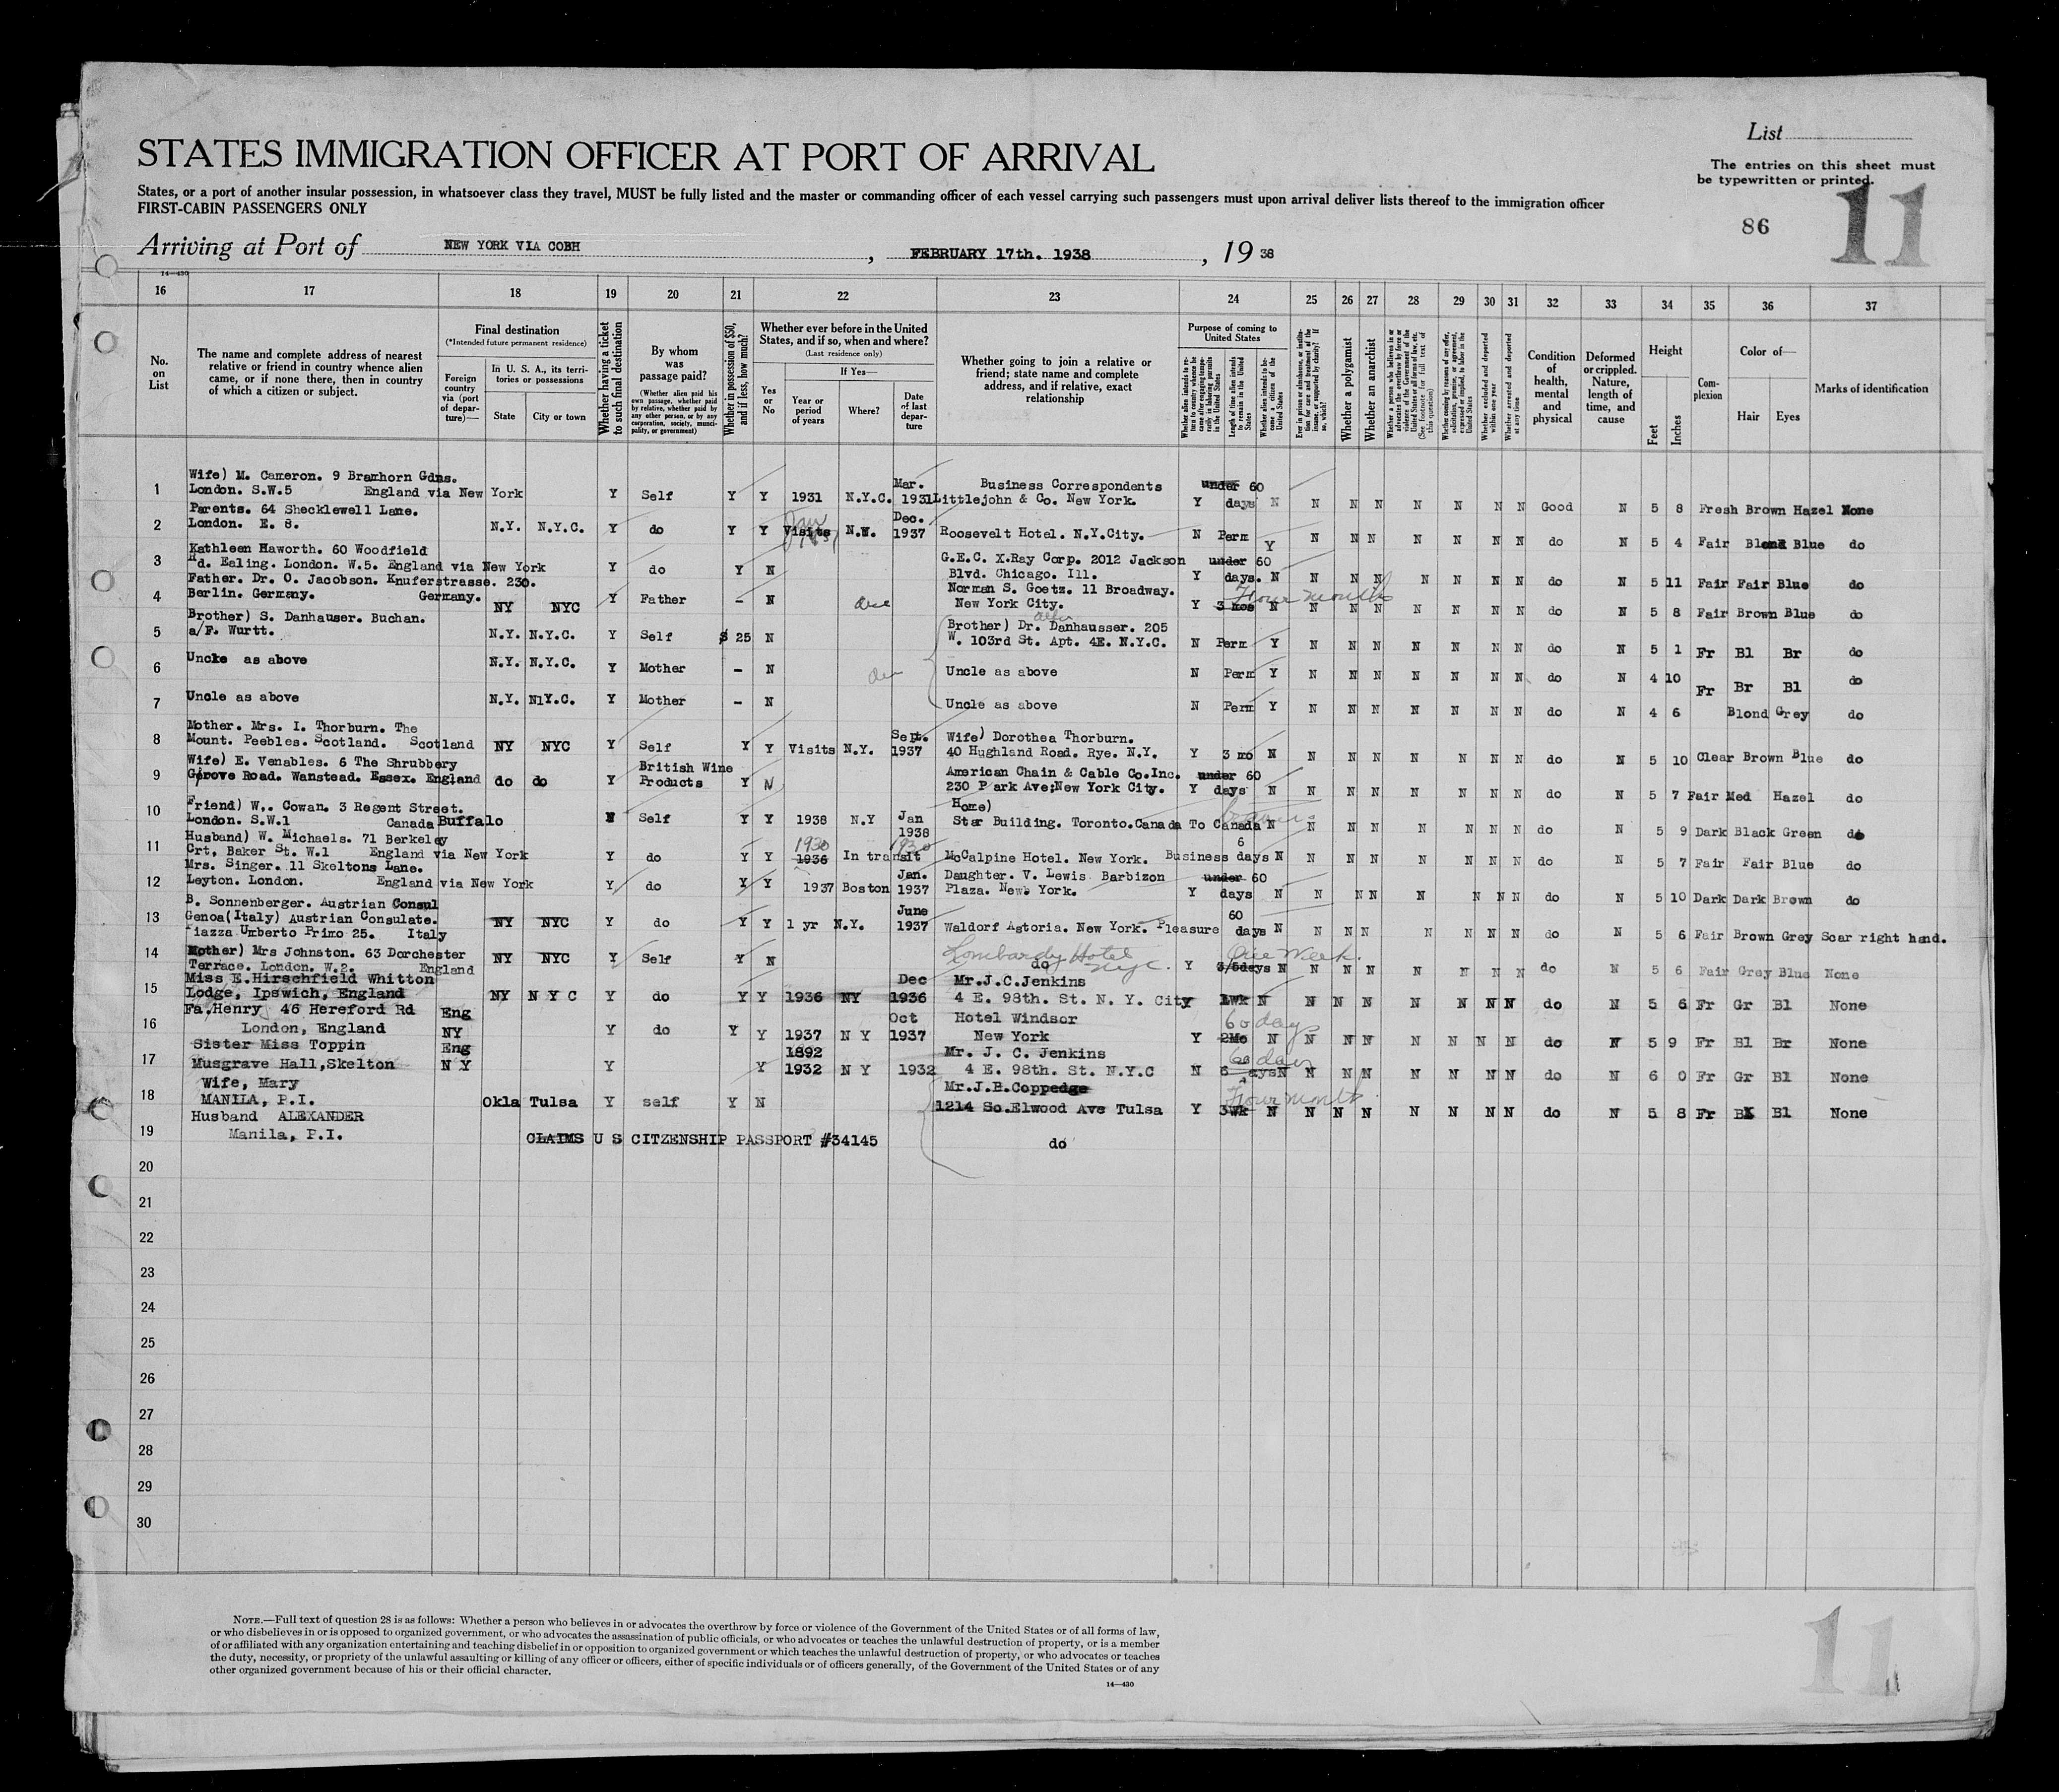 List
STATES IMMIGRATION OFFICER AT PORT OF ARRIVAL
The entries on this sheet must
be typewritten or printed.
States, or a port of another insular possession, in whatsoever class they travel, MUST be fully listed and the master or commanding officer of each vessel carrying such passengers must upon arrival deliver lists thereof to the immigration officer
FIRST-CABIN PASSENGERS ONLY
86
11
Arriving at Port of NEW YORK VIA COBH, FEBRUARY 17th. 1938, 19 38
14—430
16 17 18 19 20 21 22 23 24 25 26 27 28 29 30 31 32 33 34 35 36 37
No. on List
The name and complete address of nearest relative or friend in country whence alien came, or if none there, then in country of which a citizen or subject.
Final destination
(*Intended future permanent residence)
Foreign country via (port of departure)—
In U. S. A., its territories or possessions
State
City or town
Whether having a ticket to such final destination
By whom was passage paid?
(Whether alien paid his own passage, whether paid by relative, whether paid by any other person, or by any corporation, society, municipality, or government)
Whether in possession of $50, and if less, how much?
Whether ever before in the United States, and if so, when and where?
(Last residence only)
Yes or No
If Yes—
Year or period of years
Where?
Date of last departure
Whether going to join a relative or friend; state name and complete address, and if relative, exact relationship
Purpose of coming to United States
Whether alien intends to return to country whence he came after engaging temporarily in laboring pursuits in the United States
Length of time alien intends to remain in the United States
Whether alien intends to become a citizen of the United States
Ever in prison or almshouse, or institution for care and treatment of the insane, or supported by charity? If so, which?
Whether a polygamist
Whether an anarchist
Whether a person who believes in or advocates the overthrow by force or violence of the Government of the United States or all forms of law, etc. (See footnote for full text of this question)
Whether coming by reason of any offer, solicitation, promise, or agreement, expressed or implied, to labor in the United States
Whether excluded and deported within one year
Whether arrested and deported at any time
Condition of health, mental and physical
Deformed or crippled. Nature, length of time, and cause
Height
Feet
Inches
Complexion
Color of—
Hair
Eyes
Marks of identification
Wife) M. Cameron. 9 Bramhorn Gdns.
1 London. S.W.5 England via New York Y Self Y Y 1931 N.Y.C. Mar. 1931 Business Correspondents Littlejohn & Co. New York. Y under 60 days N N N N N N N N Good N 5 8 Fresh Brown Hazel None
Parents. 64 Shecklewell Lane.
2 London. E. 8. N.Y. N.Y.C. Y do Y Y Visits N.Y. Dec. 1937 Roosevelt Hotel. N.Y.City. N Perm Y N N N N N N N do N 5 4 Fair Blond Blue do
Kathleen Haworth. 60 Woodfield
3 Rd. Ealing. London. W.5. England via New York Y do Y N G.E.C. X.Ray Corp. 2012 Jackson Blvd. Chicago. Ill. Y under 60 days. N N N N N N N N do N 5 11 Fair Fair Blue do
Father. Dr. O. Jacobson. Knuferstrasse. 230.
4 Berlin. Germany. Germany. NY NYC Y Father - N Norman S. Goetz. 11 Broadway. New York City. Y 3 mos Four months N N N N N N N N do N 5 8 Fair Brown Blue do
Brother) S. Danhauser. Buchan.
5 a/F. Wurtt. N.Y. N.Y.C. Y Self $ 25 N Brother) Dr. Danhausser. 205 W. 103rd St. Apt. 4E. N.Y.C. N Perm Y N N N N N N N do N 5 1 Fr Bl Br do
6 Uncle as above N.Y. N.Y.C. Y Mother - N Uncle as above N Perm Y N N N N N N N do N 4 10 Fr Br Bl do
7 Uncle as above N.Y. N1Y.C. Y Mother - N Uncle as above N Perm Y N N N N N N N do N 4 6 Blond Grey do
Mother. Mrs. I. Thorburn. The
8 Mount. Peebles. Scotland. Scotland NY NYC Y Self Y Y Visits N.Y. Sept. 1937 Wife) Dorothea Thorburn. 40 Hughland Road. Rye. N.Y. Y 3 mo N N N N N N N N do N 5 10 Clear Brown Blue do
Wife) E. Venables. 6 The Shrubbery
9 Grove Road. Wanstead. Essex. England do do Y British Wine Products Y N American Chain & Cable Co.Inc. 230 Park Ave;New York City. Y under 60 days N N N N N N N N do N 5 7 Fair Med Hazel do
Friend) W.. Cowan. 3 Regent Street.
10 London. S.W.1 Canada Buffalo N Self Y Y 1938 N.Y Jan 1938 Home) Star Building. Toronto.Canada To Canada N N N N N N N N do N 5 9 Dark Black Green do
Husband) W. Michaels. 71 Berkeley
11 Crt, Baker St. W.1 England via New York Y do Y Y 1936 1930 In transit 1930 McCalpine Hotel. New York. Business 6 days N N N N N N N N do N 5 7 Fair Fair Blue do
Mrs. Singer. 11 Skeltons Lane.
12 Leyton. London. England via New York Y do Y Y 1937 Boston Jan. 1937 Daughter. V. Lewis Barbizon Plaza. New. York. Y under 60 days N N N N N N N N do N 5 10 Dark Dark Brown do
B. Sonnenberger. Austrian Consul
13 Genoa(Italy) Austrian Consulate. NY NYC Y do Y Y 1 yr N.Y. June 1937 Waldorf Astoria. New York. Pleasure 60 days N N N N N N N N do N 5 6 Fair Brown Grey Scar right hand.
Piazza Umberto Primo 25. Italy
14 Mother) Mrs Johnston. 63 Dorchester NY NYC Y Self Y N do Lombardy Hotel NYC. Y 3/5days One Week. N N N N N N N N do N 5 6 Fair Grey Blue None
Terrace. London. W.2. England
Miss E.Hirschfield Whitton
15 Lodge, Ipswich, England NY N Y C Y do Y Y 1936 NY Dec 1936 Mr.J.C.Jenkins 4 E. 98th. St. N. Y. City 1Wk N N N N N N N N do N 5 6 Fr Gr Bl None
Fa.Henry 46 Hereford Rd Eng
16 London, England NY Y do Y Y 1937 N Y Oct 1937 Hotel Windsor New York Y 2Mo 60 days N N N N N N N N do N 5 9 Fr Bl Br None
Sister Miss Toppin Eng
17 Musgrave Hall,Skelton N Y Y Y 1892 1932 N Y 1932 Mr. J. C. Jenkins 4 E. 98th. St. N.Y.C N 6 days 60 days N N N N N N N N do N 6 0 Fr Gr Bl None
Wife, Mary
18 MANILA, P.I. Okla Tulsa Y self Y N Mr.J.B.Coppedge 1214 So.Elwood Ave Tulsa Y 3Wk Four months N N N N N N N N do N 5 8 Fr Bl None
Husband ALEXANDER
19 Manila, P.I. CLAIMS U S CITZENSHIP PASSPORT #34145 do
20
21
22
23
24
25
26
27
28
29
30
NOTE.—Full text of question 28 is as follows: Whether a person who believes in or advocates the overthrow by force or violence of the Government of the United States or of all forms of law,
or who disbelieves in or is opposed to organized government, or who advocates the assassination of public officials, or who advocates or teaches the unlawful destruction of property, or is a member
of or affiliated with any organization entertaining and teaching disbelief in or opposition to organized government or which teaches the unlawful destruction of property, or who advocates or teaches
the duty, necessity, or propriety of the unlawful assaulting or killing of any officer or officers, either of specific individuals or of officers generally, of the Government of the United States or of any
other organized government because of his or their official character.
14—430
11
11